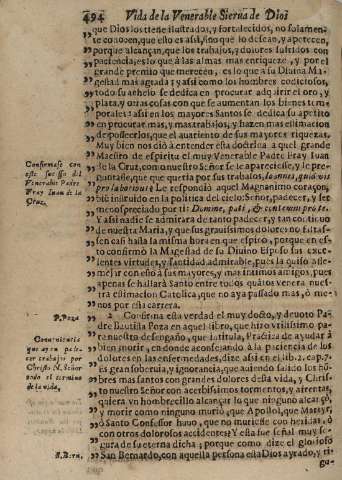 494 Vida de la Venerable Sierva de Dios
que Dios los tiene ilustrados, y fortalecidos, no solamen-
te conocen, que esto es assi, sino que lo desean, y apetecen,
porque alcançan, que los trabajos, y dolores sufridos con
paciencia, es lo que à las almas mas enriqueze, y por el
grande premio que merecen, es lo que a su Divina Ma-
gestad mas agrada: y assi como los hombres codiciosos,
todo su anhelo se dedica en procurar adquirir el oro, y
plata, y otras cosas con que se aumentan los bienes tem-
porales: assi en los mayores Santos se dedica su apetito
en procurar mas, y mas trabajos, y hazen mas estimacion
de posseerlos, que el avariento de sus mayores riquezas.
Muy bien nos dió à entender esta doctrina a quel grande
Maestro de espiritu el muy Venerable Padre Fray Iuan
de la Cruz, como nuestro Señor se le apareciesse, y le pre-
guntasse, que que queria por sus trabajos, Ioannes, quid vis
pro laboribus? Le respondió aquel Magnanimo coraçon,
biē instruido en la politica del cielo: Señor, padecer, y ser
menospreciado por ti: Domine, pati, & contemni pro te.
Y assi nadie se admirara de tanto padecer, y tan continuo
de nuestra Maria, y que sus gravissimos dolores no faltas-
sen casi hasta la misma hora en que espiró, porque en es-
to confirmò la Magestad de su Divino Esposo sus exce-
lentes virtudes, y santidad admirable, pues la quiso asse-
mejar en esto à sus mayores, y mas intimos amigos, pues
apenas se hallará Santo entre todos quātos venera nues-
tra estimacion Catolica, que no aya passado mas, ó me-
nos por esta carrera.
Confirmase con
este sucesso del
Venerable Padre
Fray Iuan de la
Cruz.
2 Confirma esta verdad el muy docto, y devoto Pa-
dre Bautista Poza en aquel libro, que hizo vtilissimo pa-
ra nuestro desengaño, que intitula, Practica de ayudar à
bien morir, en donde aconsejando à la paciencia de los
dolores en las enfermedades, dize assi en el lib. 2. cap. 7.
Es gran sobervia, y ignorancia, que aviendo salido los hō-
bres mas santos con grandes dolores desta vida, y Chris-
to nuestro Señor con acerbissimos tormentos, y afrentas,
quiera vn hombrecillo alcançar lo que ninguno alcançó,
y morir como ninguno murió, que Apostol, que Martyr,
ò Santo Confessor huvo, que no muriesse con heridas, ò
con otros dolorosos accidentes? Y esta fue señal muy se-
gura de su eterna dicha; porque como dize el glorioso
San Bernardo, con aquella persona esta Dios ayrado, y ri-
gu-
P. Poza
Conveniencia
que aya pade-
cer trabajos por
Christo N. Señor
todo el termino
de la vida.
S. Bern.